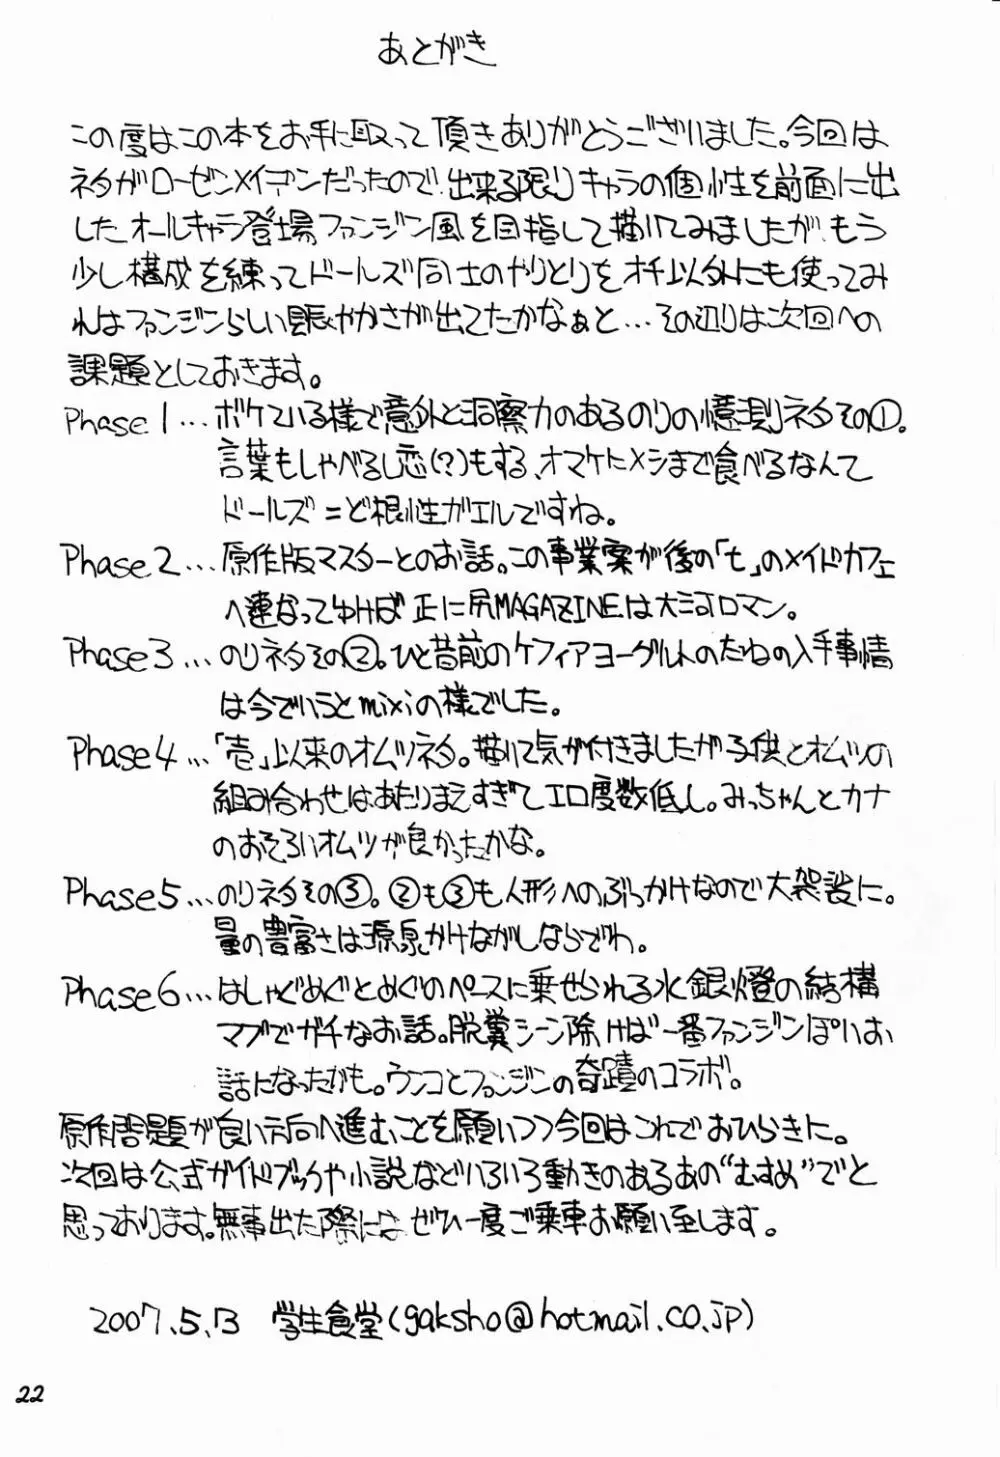 あとがき
この度はこの本をお手に取って頂きありがとうございました。今回は
ネタがローゼンメイデンだったので、出来る限りキャラの個性を前面に出
したオールキャラ登場ファンジン風を目指して描いてみましたが、もう
少し構成を練ってドールズ同士のやりとりをオチ以外にも使ってみ
ればファンジンらしい賑やかさが出てたかなぁと…その辺りは次回への
課題としておきます。
Phase.1…ボケている様で意外と洞察力のあるのりの憶測ネタその①。
言葉もしゃべるし恋(?)もする、オマケにメシまで食べるなんて
ドールズ=ど根性ガエルですね。
Phase.2…原作版マスターとのお話。この事業案が後の「t」のメイドカフェ
へ連なってゆけば正に尻MAGAZINEは大河ロマン。
Phase3…のりネタその②。ひと昔前のケフィアヨーグルトのたねの入手事情
は今でいうとmixiの様でした。
Phase4…「壱」以来のオムツネタ。描いて気が付きましたが子供とオムツの
組み合わせはあたりまえすぎてエロ度数低し。みっちゃんとカナ
のおそろいオムツが良かったかな。
Phase5…のりネタその③。②も③も人形へのぶっかけなので大袈裟に。
量の豊富さは源泉かけながしならでわ。
Phase6…はしゃぐめぐとめぐのペースに乗せられる水銀燈の結構
マブでガチなお話。脱糞シーン除けば一番ファンジンぽいお
話になったかも。ウンコとファンジンの奇蹟のコラボ。
原作問題が良い方向へ進むことを願いつつ今回はこれでおひらきに。
次回は公式ガイドブックや小説などいろいろ動きのあるあの"むすめ"でと
思っております。無事出た際にはぜひ一度ご乗車お願い至します。
2007.5.13 学生食堂(gaksho@hotmail.co.jp)
22